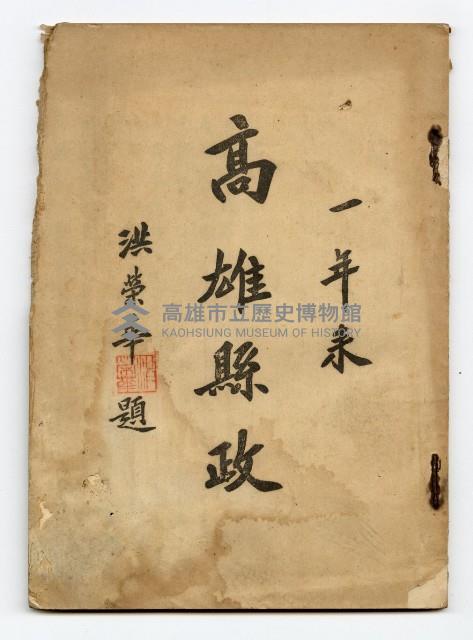 一年来
高雄縣政
洪榮華題
高雄市立歷史博物館
KAOHSIUNG MUSEUM OF HISTORY